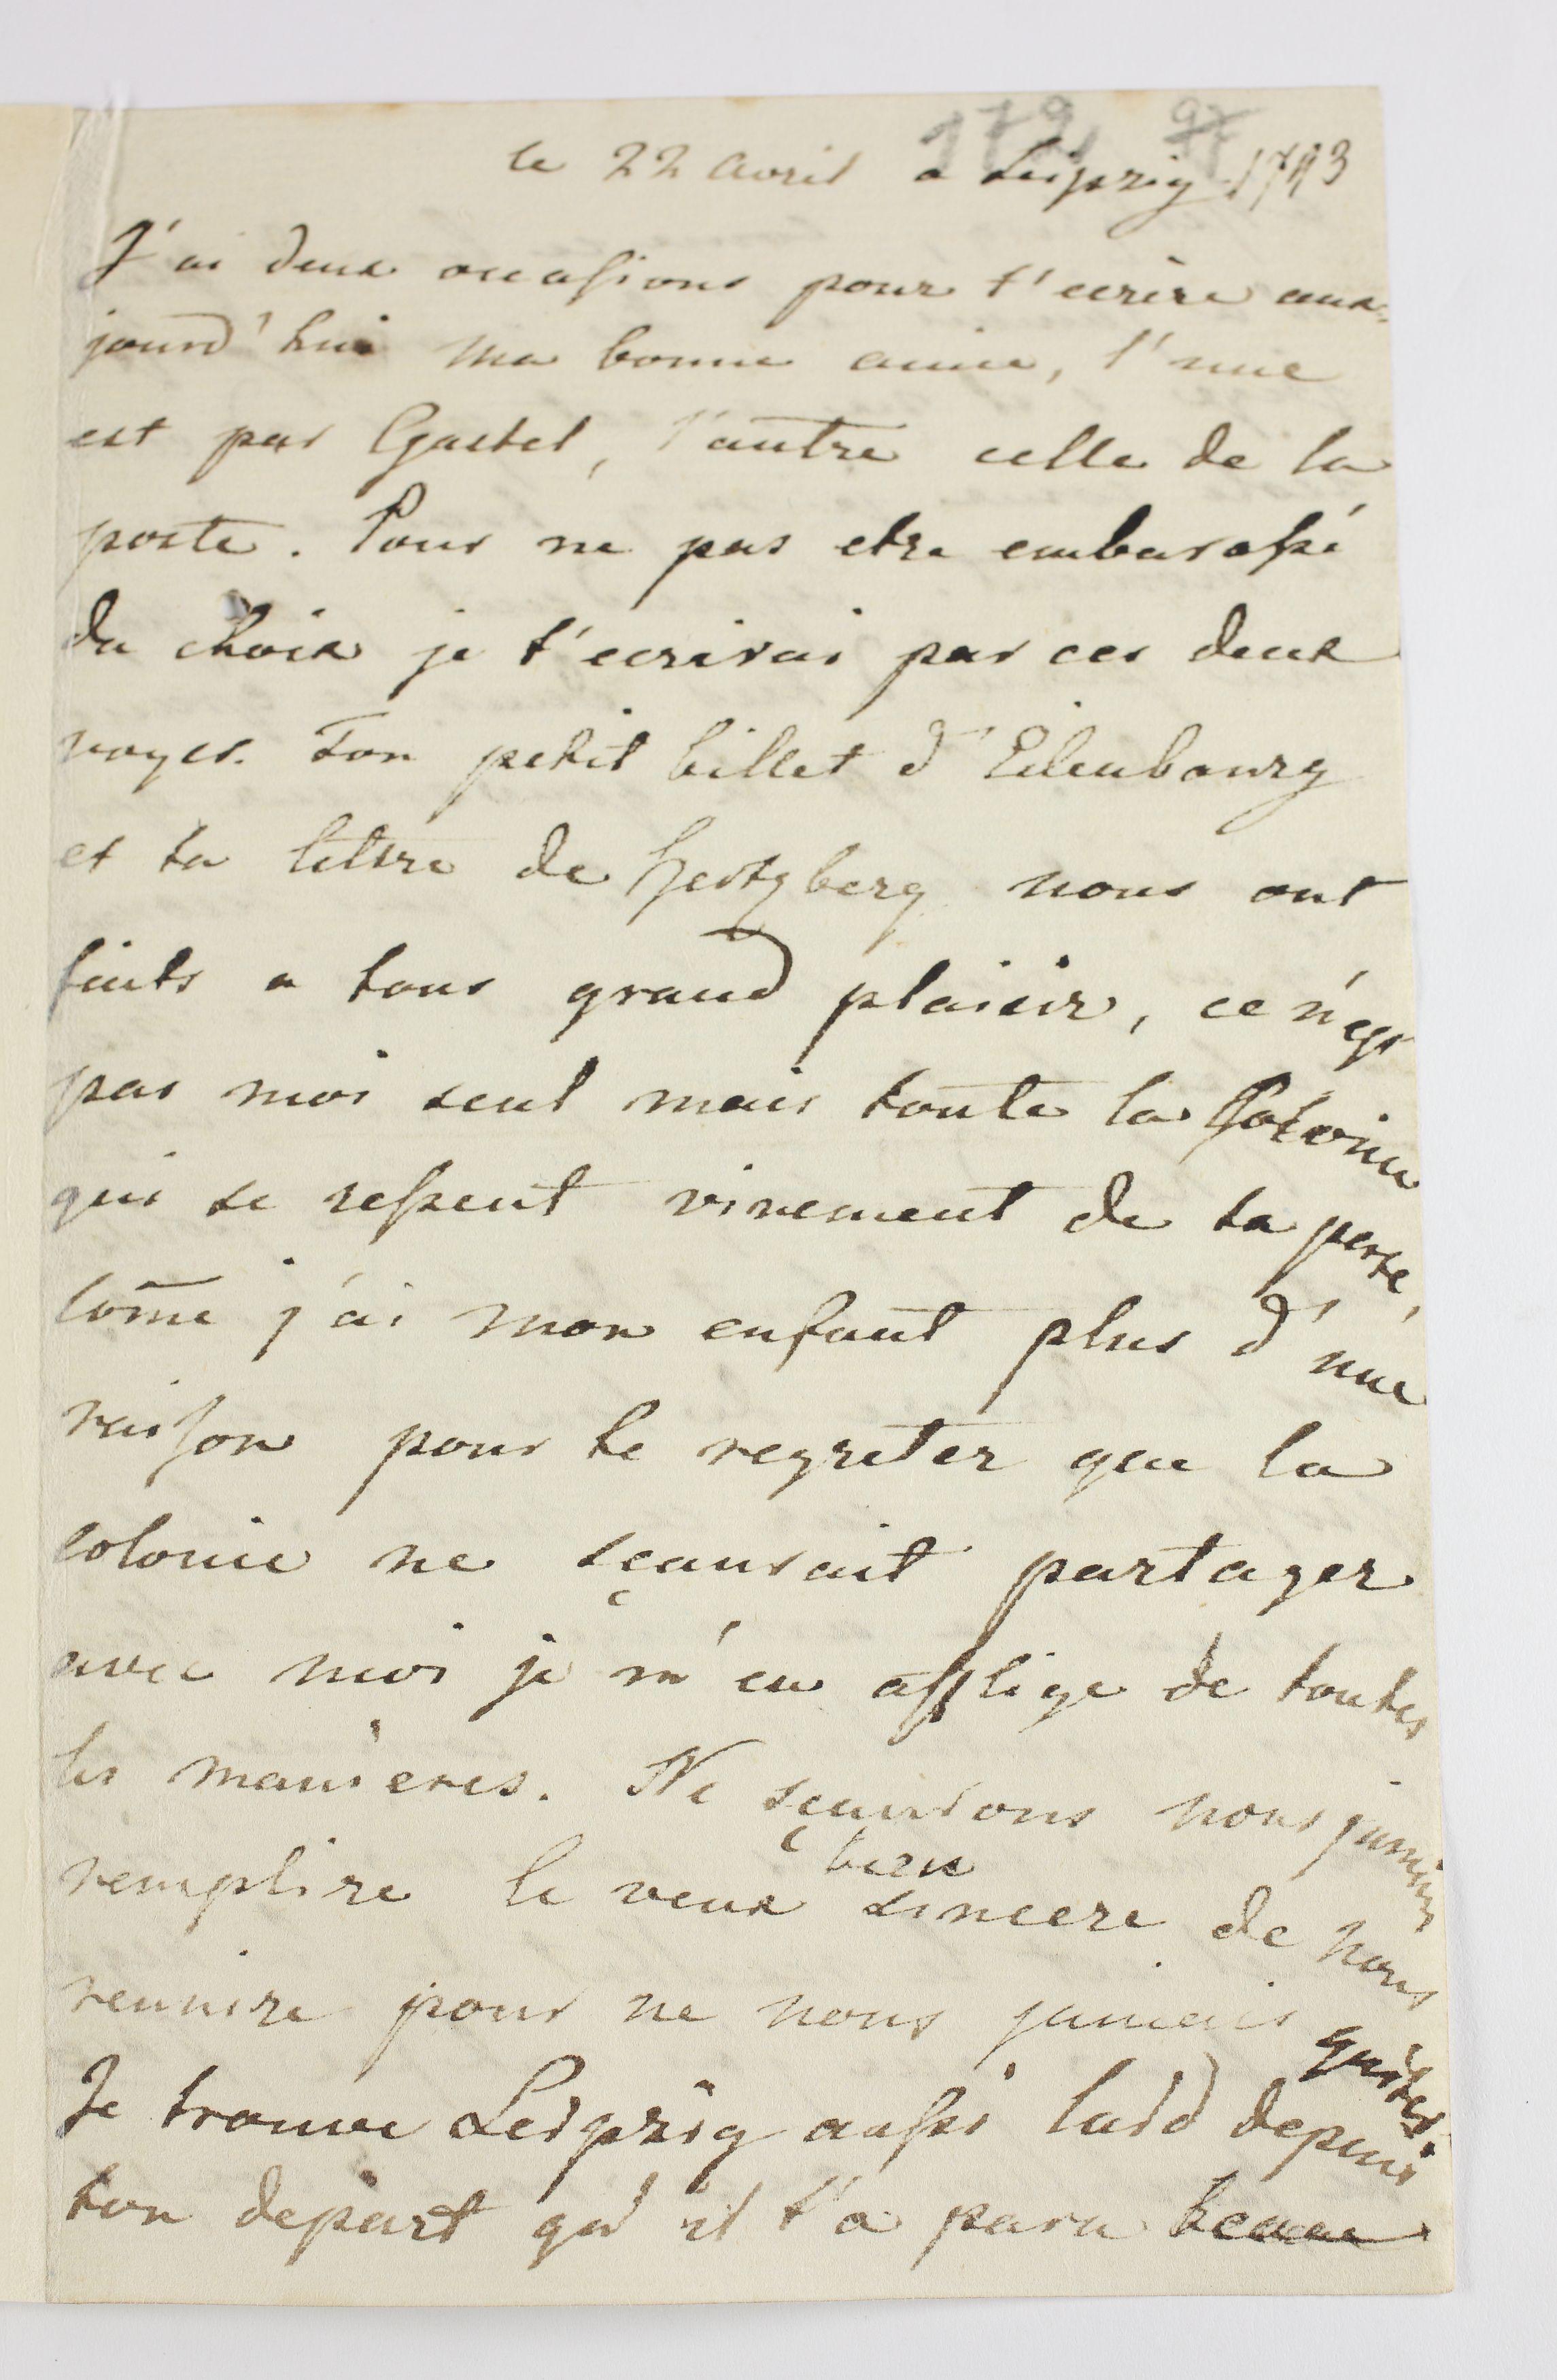 179 97
le 22 avril a Leipzig 1793
J'ai deux occasions pour t'ecrire aux-
jourd'hui ma bonne amie, l'une
est par Gastel, l'autre celle de la
poste. Pour ne pas etre embarassé
du choix je t'ecrirai par ces deux
voyes. Ton petit billet d'Eilenbourg
et ta lettre de Hertzberg nous ont
faits a tous grand plaisir, ce n'est
pas moi seul mais toute la Colonie
qui se ressent vivement de ta perte,
come j'ai mon enfant plus d'une
raison pour te regreter que la
colonie ne sçaurait partager
avec moi je m'en afflige de toutes
les manieres. Ne sçaurons nous jamais
remplire le veux bien sincere de nous
reunire pour ne nous jamais quiter.
Je trouve Leipzig aussi laid depuis
ton depart qu'il t'a paru beau